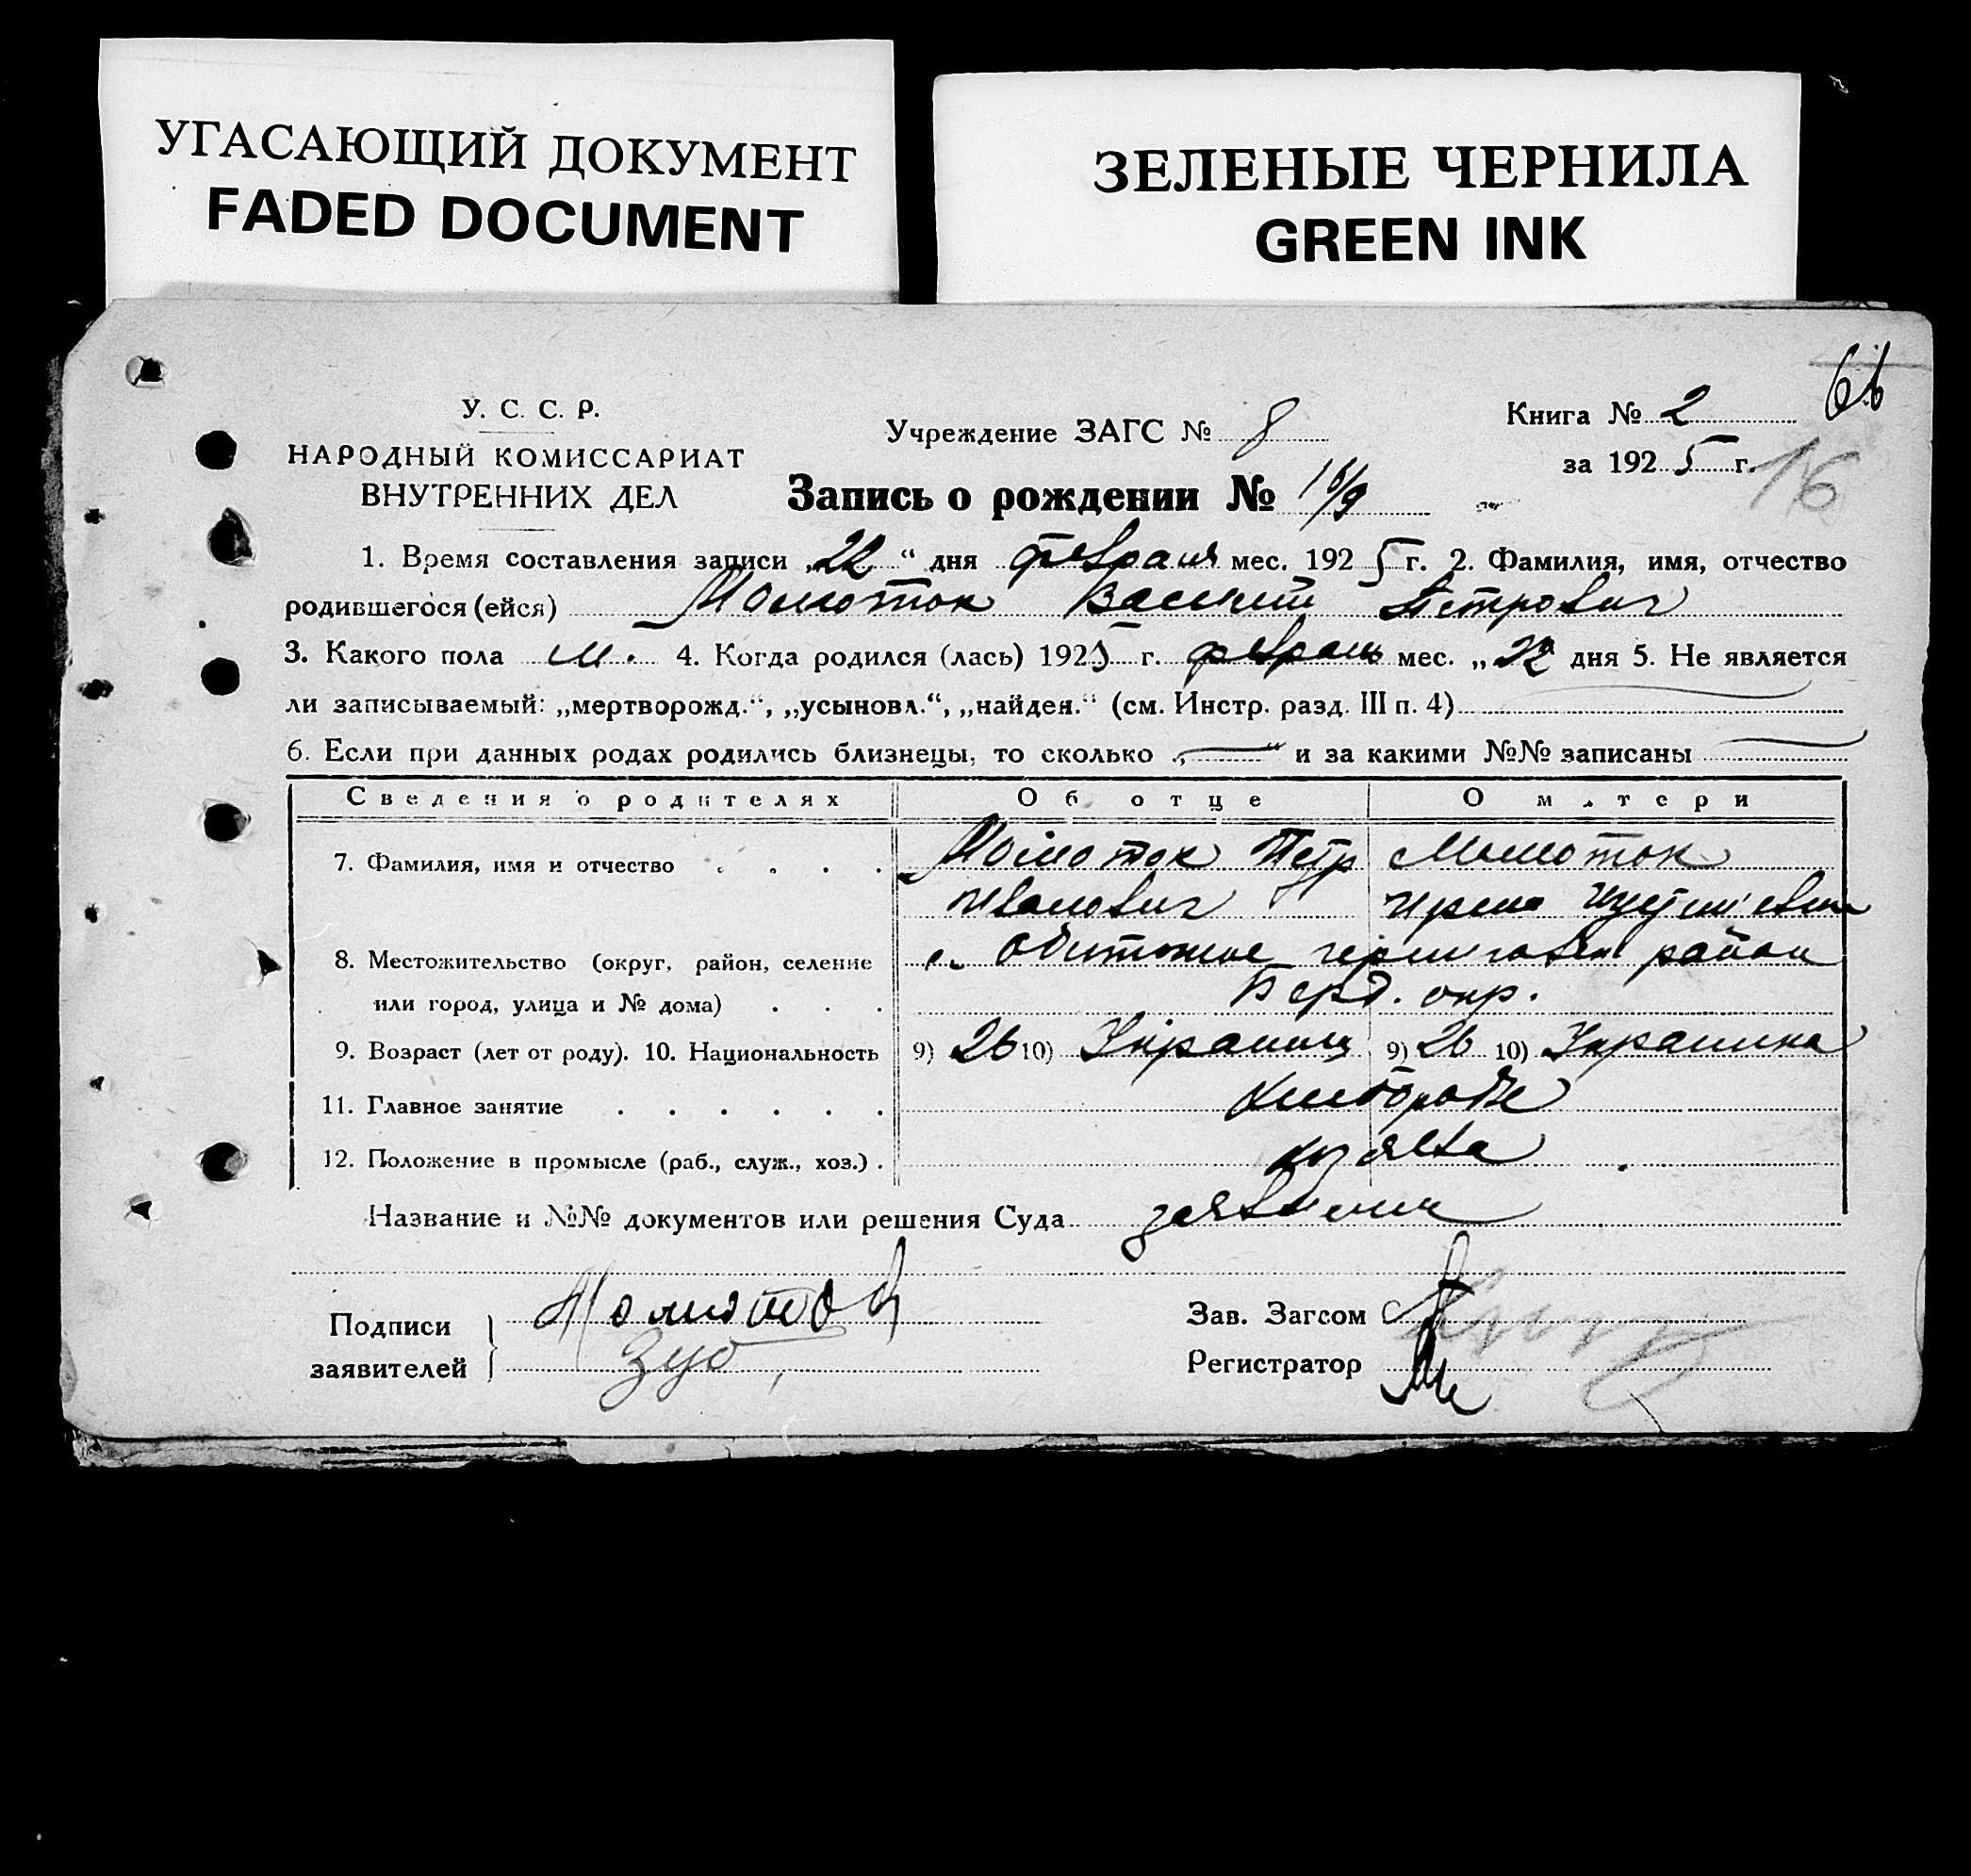 УГАСАЮЩИЙ ДОКУМЕНТ
FADED DOCUMENT
ЗЕЛЕНЫЕ ЧЕРНИЛА
GREEN INK
66
У. С. С. Р.
НАРОДНЫЙ КОМИССАРИАТ
ВНУТРЕННИХ ДЕЛ
Учреждение ЗАГС № 8
Книга № 2
за 1925 г.
16
Запись о рождении №
1. Время составления записи „22“ дня февраля мес. 1925 г. 2. Фамилия, имя, отчество
родившегося (ейся) Молоток Василий Петрович
3. Какого пола м. 4. Когда родился (лась) 1925 г. февраль мес. „22 дня 5. Не является
ли записываемый: „мертворожд.“, „усыновл.“, „найден.“ (см. Инстр. разд. III п. 4)
6. Если при данных родах родились близнецы, то сколько „—“ и за какими №№ записаны
Сведения о родителях Об отце О матери
7. Фамилия, имя и отчество Молоток Петр Молоток
Иванович
8. Местожительство (округ, район, селение с. Обиточное район
или город, улица и № дома) Берд. окр.
9. Возраст (лет от роду). 10. Национальность 9) 26 10) Украинец 9) 26 10) Украинка
11. Главное занятие хлебороб
12. Положение в промысле (раб., служ., хоз.)
Название и №№ документов или решения Суда
Подписи Молоток
заявителей Зуб
Зав. Загсом
Регистратор